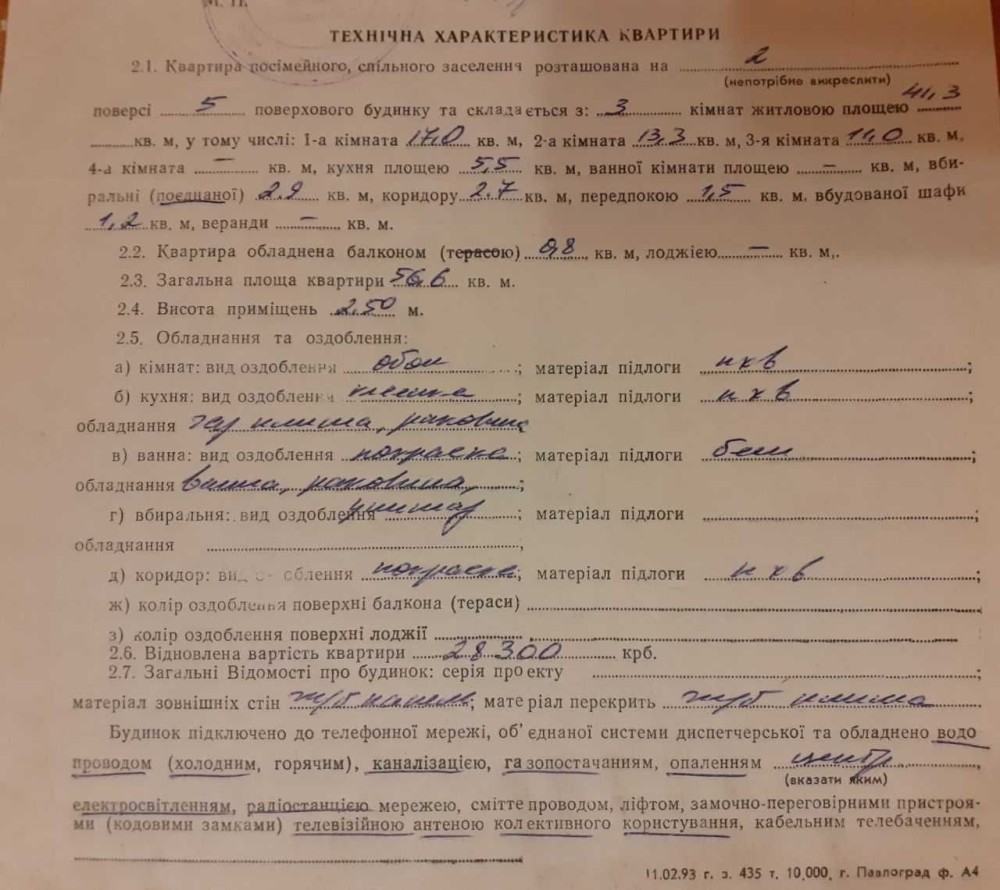 М. П.
ТЕХНІЧНА ХАРАКТЕРИСТИКА КВАРТИРИ
2.1. Квартира посімейного, спільного заселення розташована на 2
(непотрібне викреслити)
поверсі 5 поверхового будинку та складається з: 3 кімнат житловою площею 41,3
кв. м, у тому числі: 1-а кімната 17,0 кв. м, 2-а кімната 13,3 кв. м, 3-я кімната 11,0 кв. м,
4-а кімната — кв. м, кухня площею 5,5 кв. м, ванної кімнати площею — кв. м, вби-
ральні (поєднаної) 2.9 кв. м, коридору 2.7 кв. м, передпокою 1,5 кв. м, вбудованої шафи
1,2 кв. м, веранди — кв. м.
2.2. Квартира обладнена балконом (терасою) 0,8 кв. м, лоджією — кв. м,.
2.3. Загальна площа квартири 56.6 кв. м.
2.4. Висота приміщень 2.50 м.
2.5. Обладнання та оздоблення:
а) кімнат: вид оздоблення обои; матеріал підлоги пхв;
б) кухня: вид оздоблення ; матеріал підлоги пхв;
обладнання плита, раковина
в) ванна: вид оздоблення покраска; матеріал підлоги ;
обладнання ванна, раковина,;
г) вбиральня: вид оздоблення унитаз; матеріал підлоги ;
обладнання ,
д) коридор: вид оздоблення покраска; матеріал підлоги пхв;
ж) колір оздоблення поверхні балкона (тераси) ;
з) колір оздоблення поверхні лоджії
2.6. Відновлена вартість квартири 28300 крб.
2.7. Загальні Відомості про будинок: серія проекту ;
матеріал зовнішніх стін ж/б панель; матеріал перекрить ж/б плита
Будинок підключено до телефонної мережі, об'єднаної системи диспетчерської та обладнено водо
проводом (холодним, горячим), каналізацією, газопостачаням, опаленням центр,
(вказати яким)
електросвітленням, радіостанцією мережею, смітте проводом, ліфтом, замочно-переговірними пристроя-
ми (кодовими замками) телевізійною антеною колективного користування, кабельним телебаченням,
11.02.93 г. з. 435 т. 10,000, г. Павлоград ф. А4